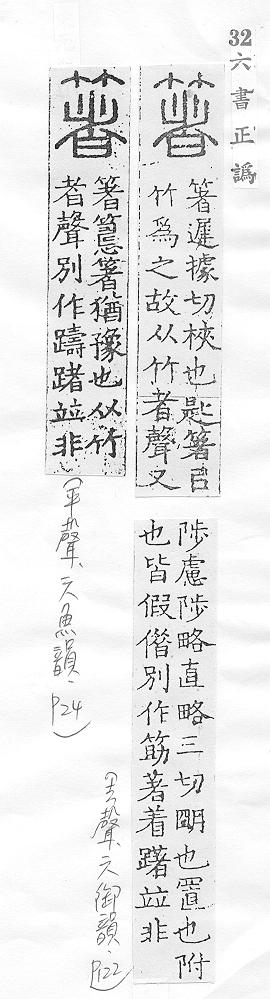 32 六書正譌
箸
箸遲據切梜也匙箸㠯
竹為之故从竹者聲又
陟慮陟略直略三切朙也置也附
也皆假借別作筯著着躇竝非
(去聲、六御韻、P122)
箸
箸箸猶豫也从竹
者聲別作躊躇竝非
(平聲、六魚韻、P24)